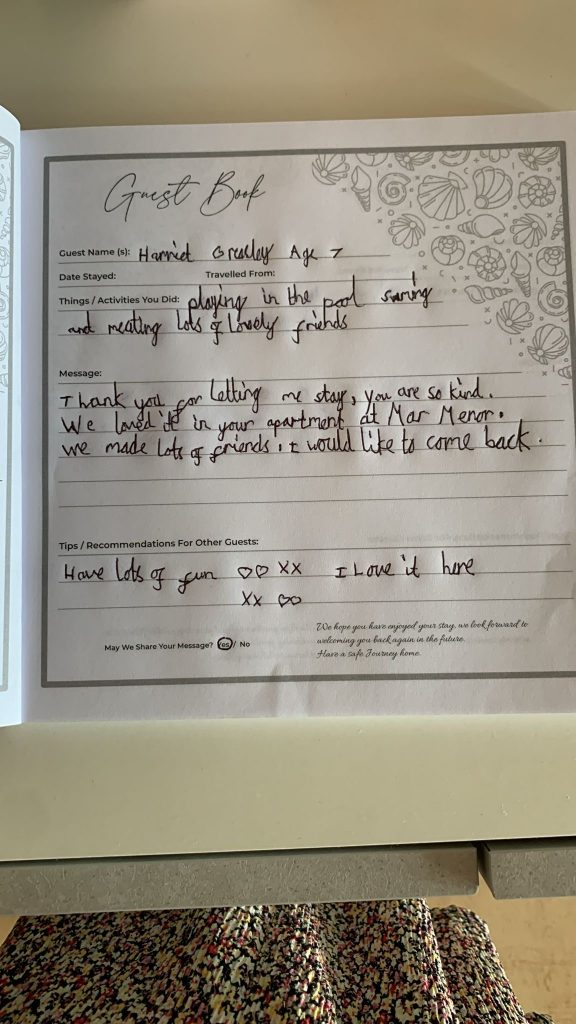 Guest Book
Guest Name (s): Harriet Greatley Age 7
Date Stayed: Travelled From:
Things / Activities You Did: playing in the pool
and meating lots of lovely friends
Message:
Thank you for letting me stay, you are so kind.
We loved it in your apartment at Mar Menor.
we made lots of friends. I would like to come back.
Tips / Recommendations For Other Guests:
Have lots of fun ♡♡ XX I Love it here
Xx ♡♡
We hope you have enjoyed your stay, we look forward to
welcoming you back again in the future.
Have a safe Journey home.
May We Share Your Message? Yes / No